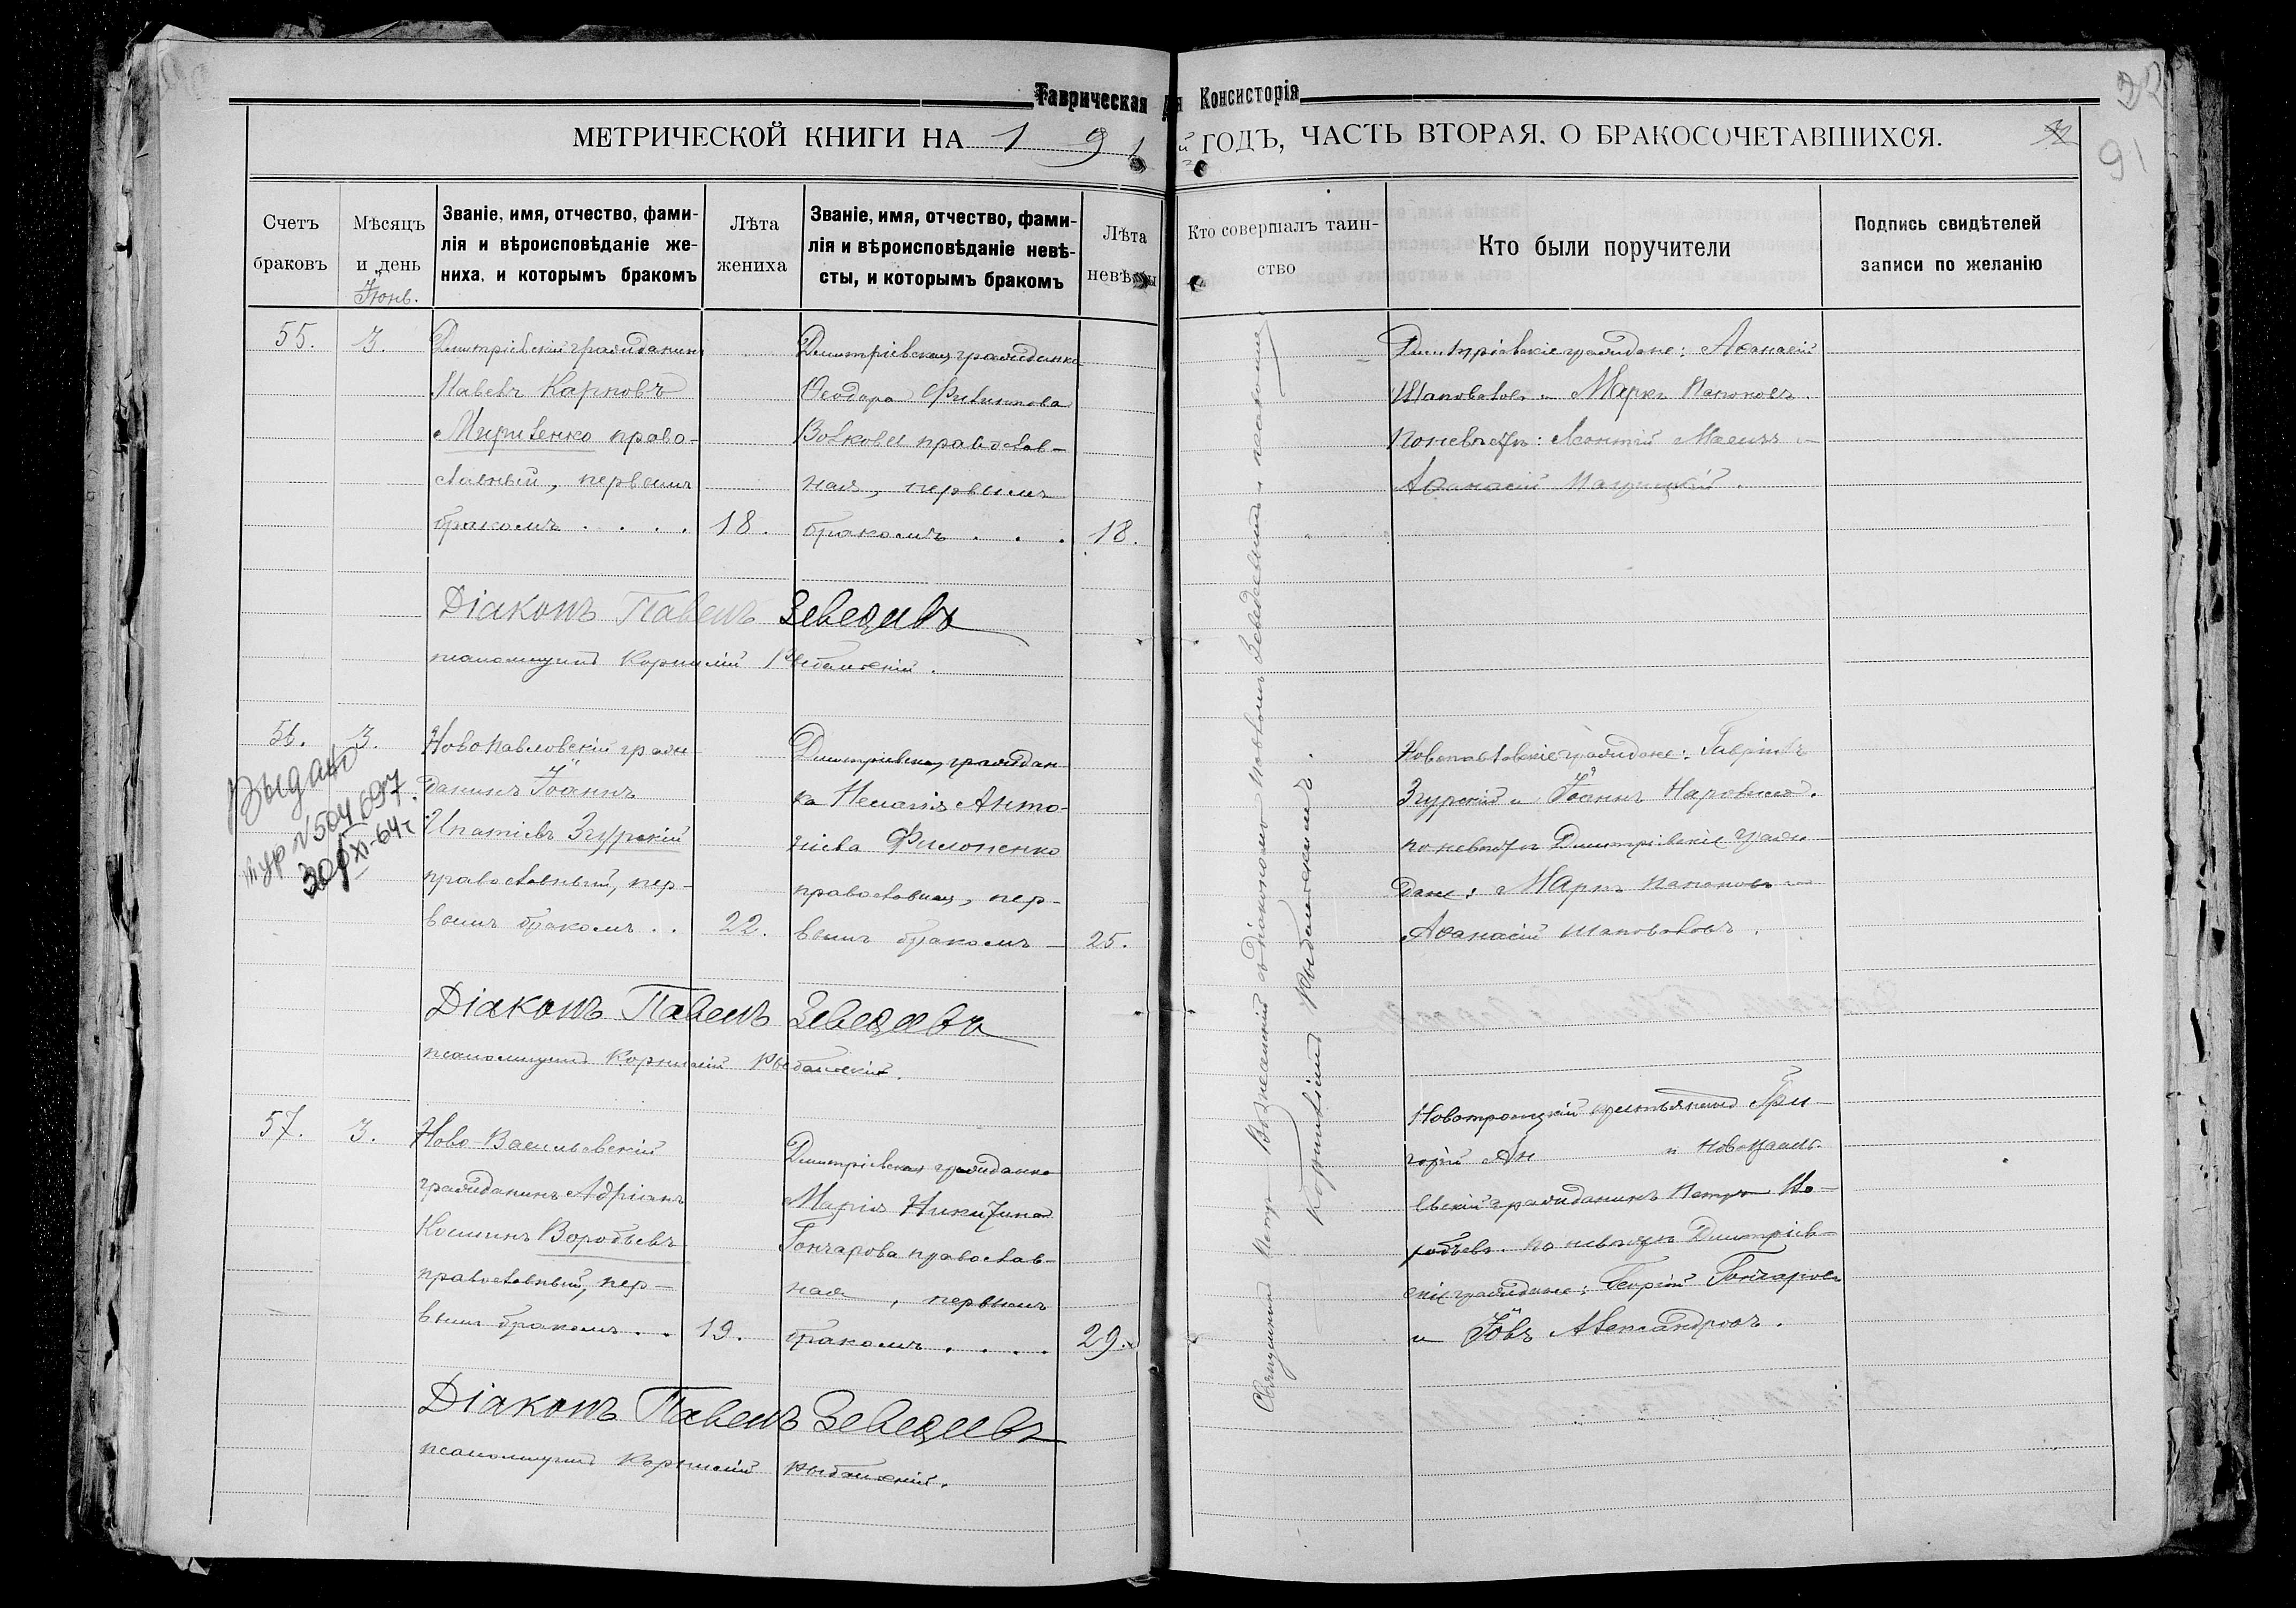 Таврическая Консисторія
МЕТРИЧЕСКОЙ КНИГИ НА 191 й ГОДЪ, ЧАСТЬ ВТОРАЯ. О БРАКОСОЧЕТАВШИХСЯ.
91
Счетъ браковъ
Мѣсяцъ и день
Іюнь.
Званіе, имя, отчество, фами-
лія и вѣроисповѣданіе же-
ниха, и которымъ бракомъ
Лѣта
жениха
Званіе, имя, отчество, фами-
лія и вѣроисповѣданіе невѣ-
сты, и которымъ бракомъ
Лѣта
невѣсты
Кто совершалъ таин-
ство
Кто были поручители
Подпись свидѣтелей
записи по желанію
55.
3.
Димитріевскій гражданинъ
Павелъ Карповъ
Мириленко право-
славный, первымъ
бракомъ . . . .
18.
Димитріевская гражданка
Ѳеодора Филиппова
Волкова православ-
ная, первымъ
бракомъ . . .
18.
Димитріевскіе граждане: Аѳанасій
Шаповаловъ и Маркъ
По невѣстѣ: Леонтій и
Аѳанасій
Діаконъ Павелъ Зеведеевъ
псаломщикъ Корнилій Рыбальскій.
56.
3.
Выдано
№ 504697.
30/XI-64 г
Новопавловскій граж-
данинъ Іоаннъ
Ипатіевъ Згурскій
православный, пер-
вымъ бракомъ . .
22.
Димитріевская граждан-
ка Пелагія Анто-
ніева Филоненко
православная, пер-
вымъ бракомъ —
25.
Новопавловскіе граждане: Гавріилъ
Згурскій и Іоаннъ
по невѣстѣ Димитріевскіе граж-
дане: Маркъ и
Аѳанасій Шаповаловъ.
Діаконъ Павелъ Зеведеевъ
псаломщикъ Корнилій Рыбальскій.
57.
3.
Ново-Васильевскій
гражданинъ Адріанъ
Косминъ Воробьевъ
православный, пер-
вымъ бракомъ . .
19.
Димитріевская гражданка
Марія Никитина
Гончарова православ-
ная, первымъ
бракомъ . . . .
29.
Новотроицкій крестьянинъ Гри-
горій и Нововаси-
льевскій гражданинъ Петръ Во-
робьевъ. по невѣстѣ Димитріев-
скіе граждане: Георгій Гончаровъ
и Іовъ Александровъ.
Діаконъ Павелъ Зеведеевъ
псаломщикъ Корнилій Рыбальскій.
Священникъ Петръ Вознесенскій съ діакономъ Павломъ Зеведеевымъ и псаломщ.
Корниліемъ Рыбальскимъ.